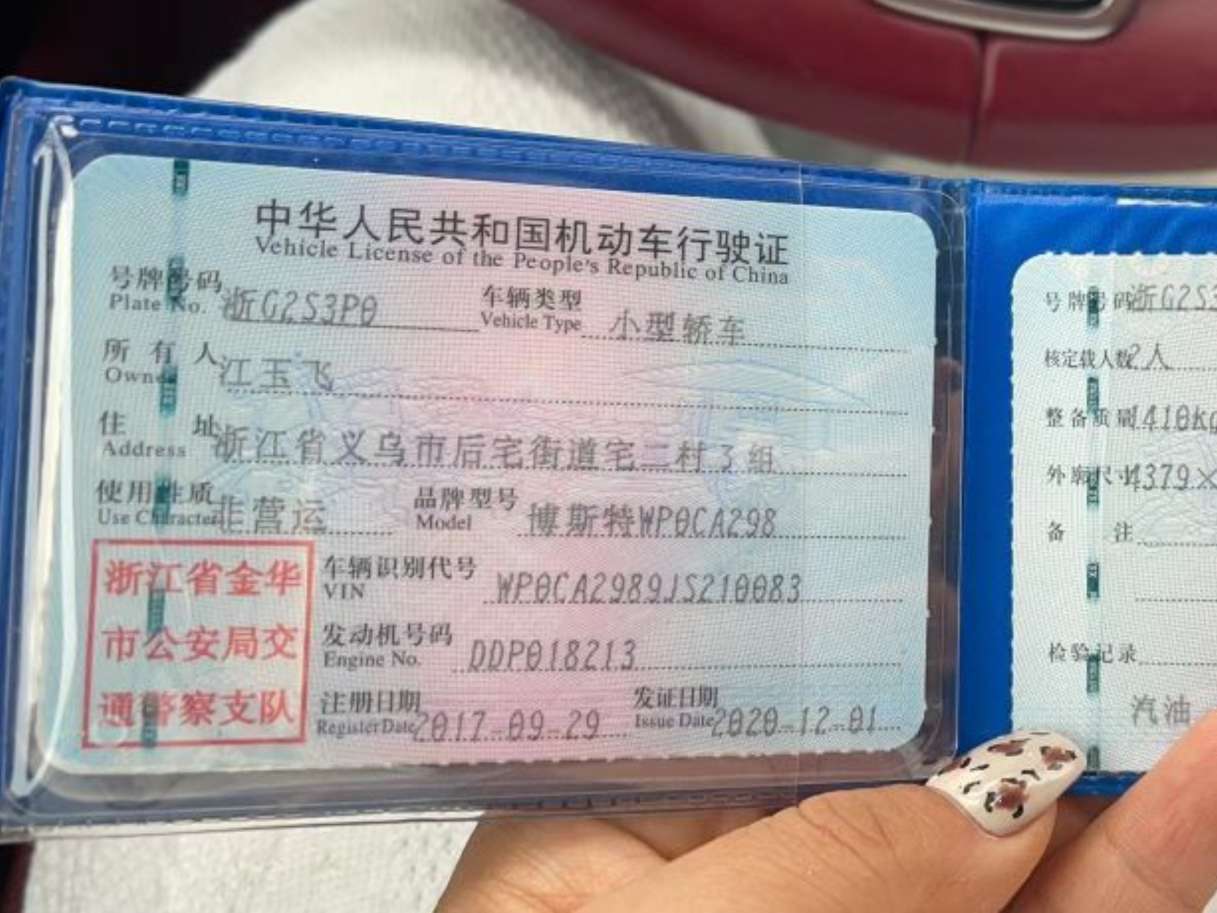 中华人民共和国机动车行驶证
Vehicle License of the People's Republic of China
号牌号码 浙G2S3P0 车辆类型 小型轿车
Plate No. Vehicle Type
所有人 江玉飞
Owner
住址 浙江省义乌市后宅街道宅二村3组
Address
使用性质 非营运 品牌型号 博斯特WP0CA298
Use Character Model
浙江省金华
市公安局交
通警察支队
车辆识别代号 WP0CA2989JS210083
VIN
发动机号码 DDP018213
Engine No.
注册日期 2017-09-29 发证日期 2020-12-01
Register Date Issue Date
号牌号码 浙G2S3
核定载人数 2人
整备质量 1410kg
外廓尺寸 4379×
备注
检验记录
汽油